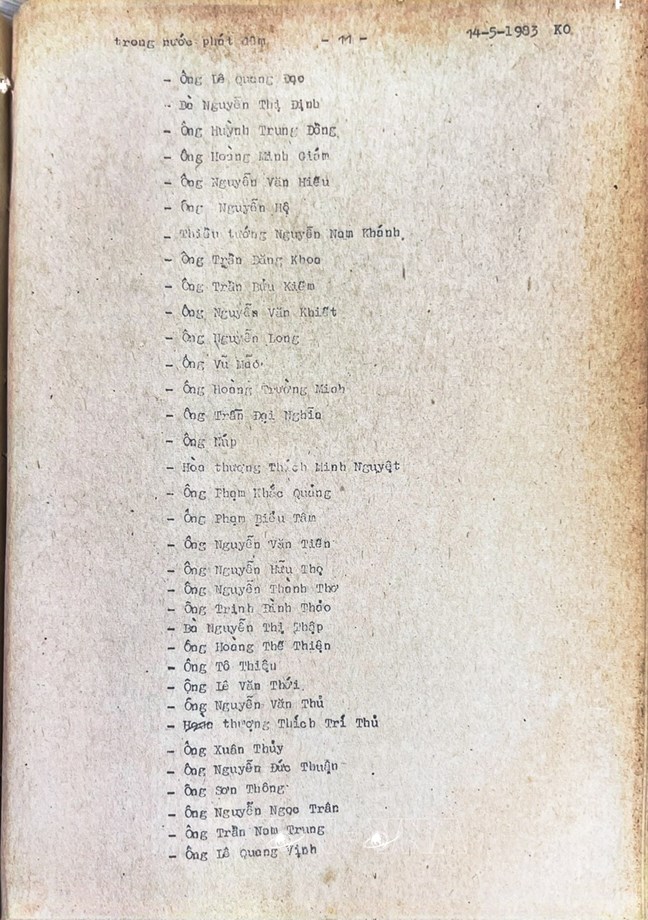 trong nước phát năm - 11 - 14-5-1983 KO
- Ông Lê Quang Đạo
- Bà Nguyễn Thị Định
- Ông Huỳnh Trung Đồng
- Ông Hoàng Minh Giám
- Ông Nguyễn Văn Hiếu
- Ông Nguyễn Hộ
- Thiếu tướng Nguyễn Nam Khánh
- Ông Trần Đăng Khoa
- Ông Trần Bửu Kiếm
- Ông Nguyễn Văn Khiết
- Ông Nguyễn Long
- Ông Vũ Mão
- Ông Hoàng Trường Minh
- Ông Trần Đại Nghĩa
- Ông Núp
- Hòa thượng Thích Minh Nguyệt
- Ông Phạm Khắc Quảng
- Ông Phạm Biểu Tâm
- Ông Nguyễn Văn Tiến
- Ông Nguyễn Hữu Thọ
- Ông Nguyễn Thành Thơ
- Ông Trịnh Đình Thảo
- Bà Nguyễn Thị Thập
- Ông Hoàng Thế Thiện
- Ông Tô Thiệu
- Ông Lê Văn Thới
- Ông Nguyễn Văn Thủ
- Hòa thượng Thích Trí Thủ
- Ông Xuân Thủy
- Ông Nguyễn Đức Thuận
- Ông Sơn Thông
- Ông Nguyễn Ngọc Trân
- Ông Trần Nam Trung
- Ông Lê Quang Vịnh